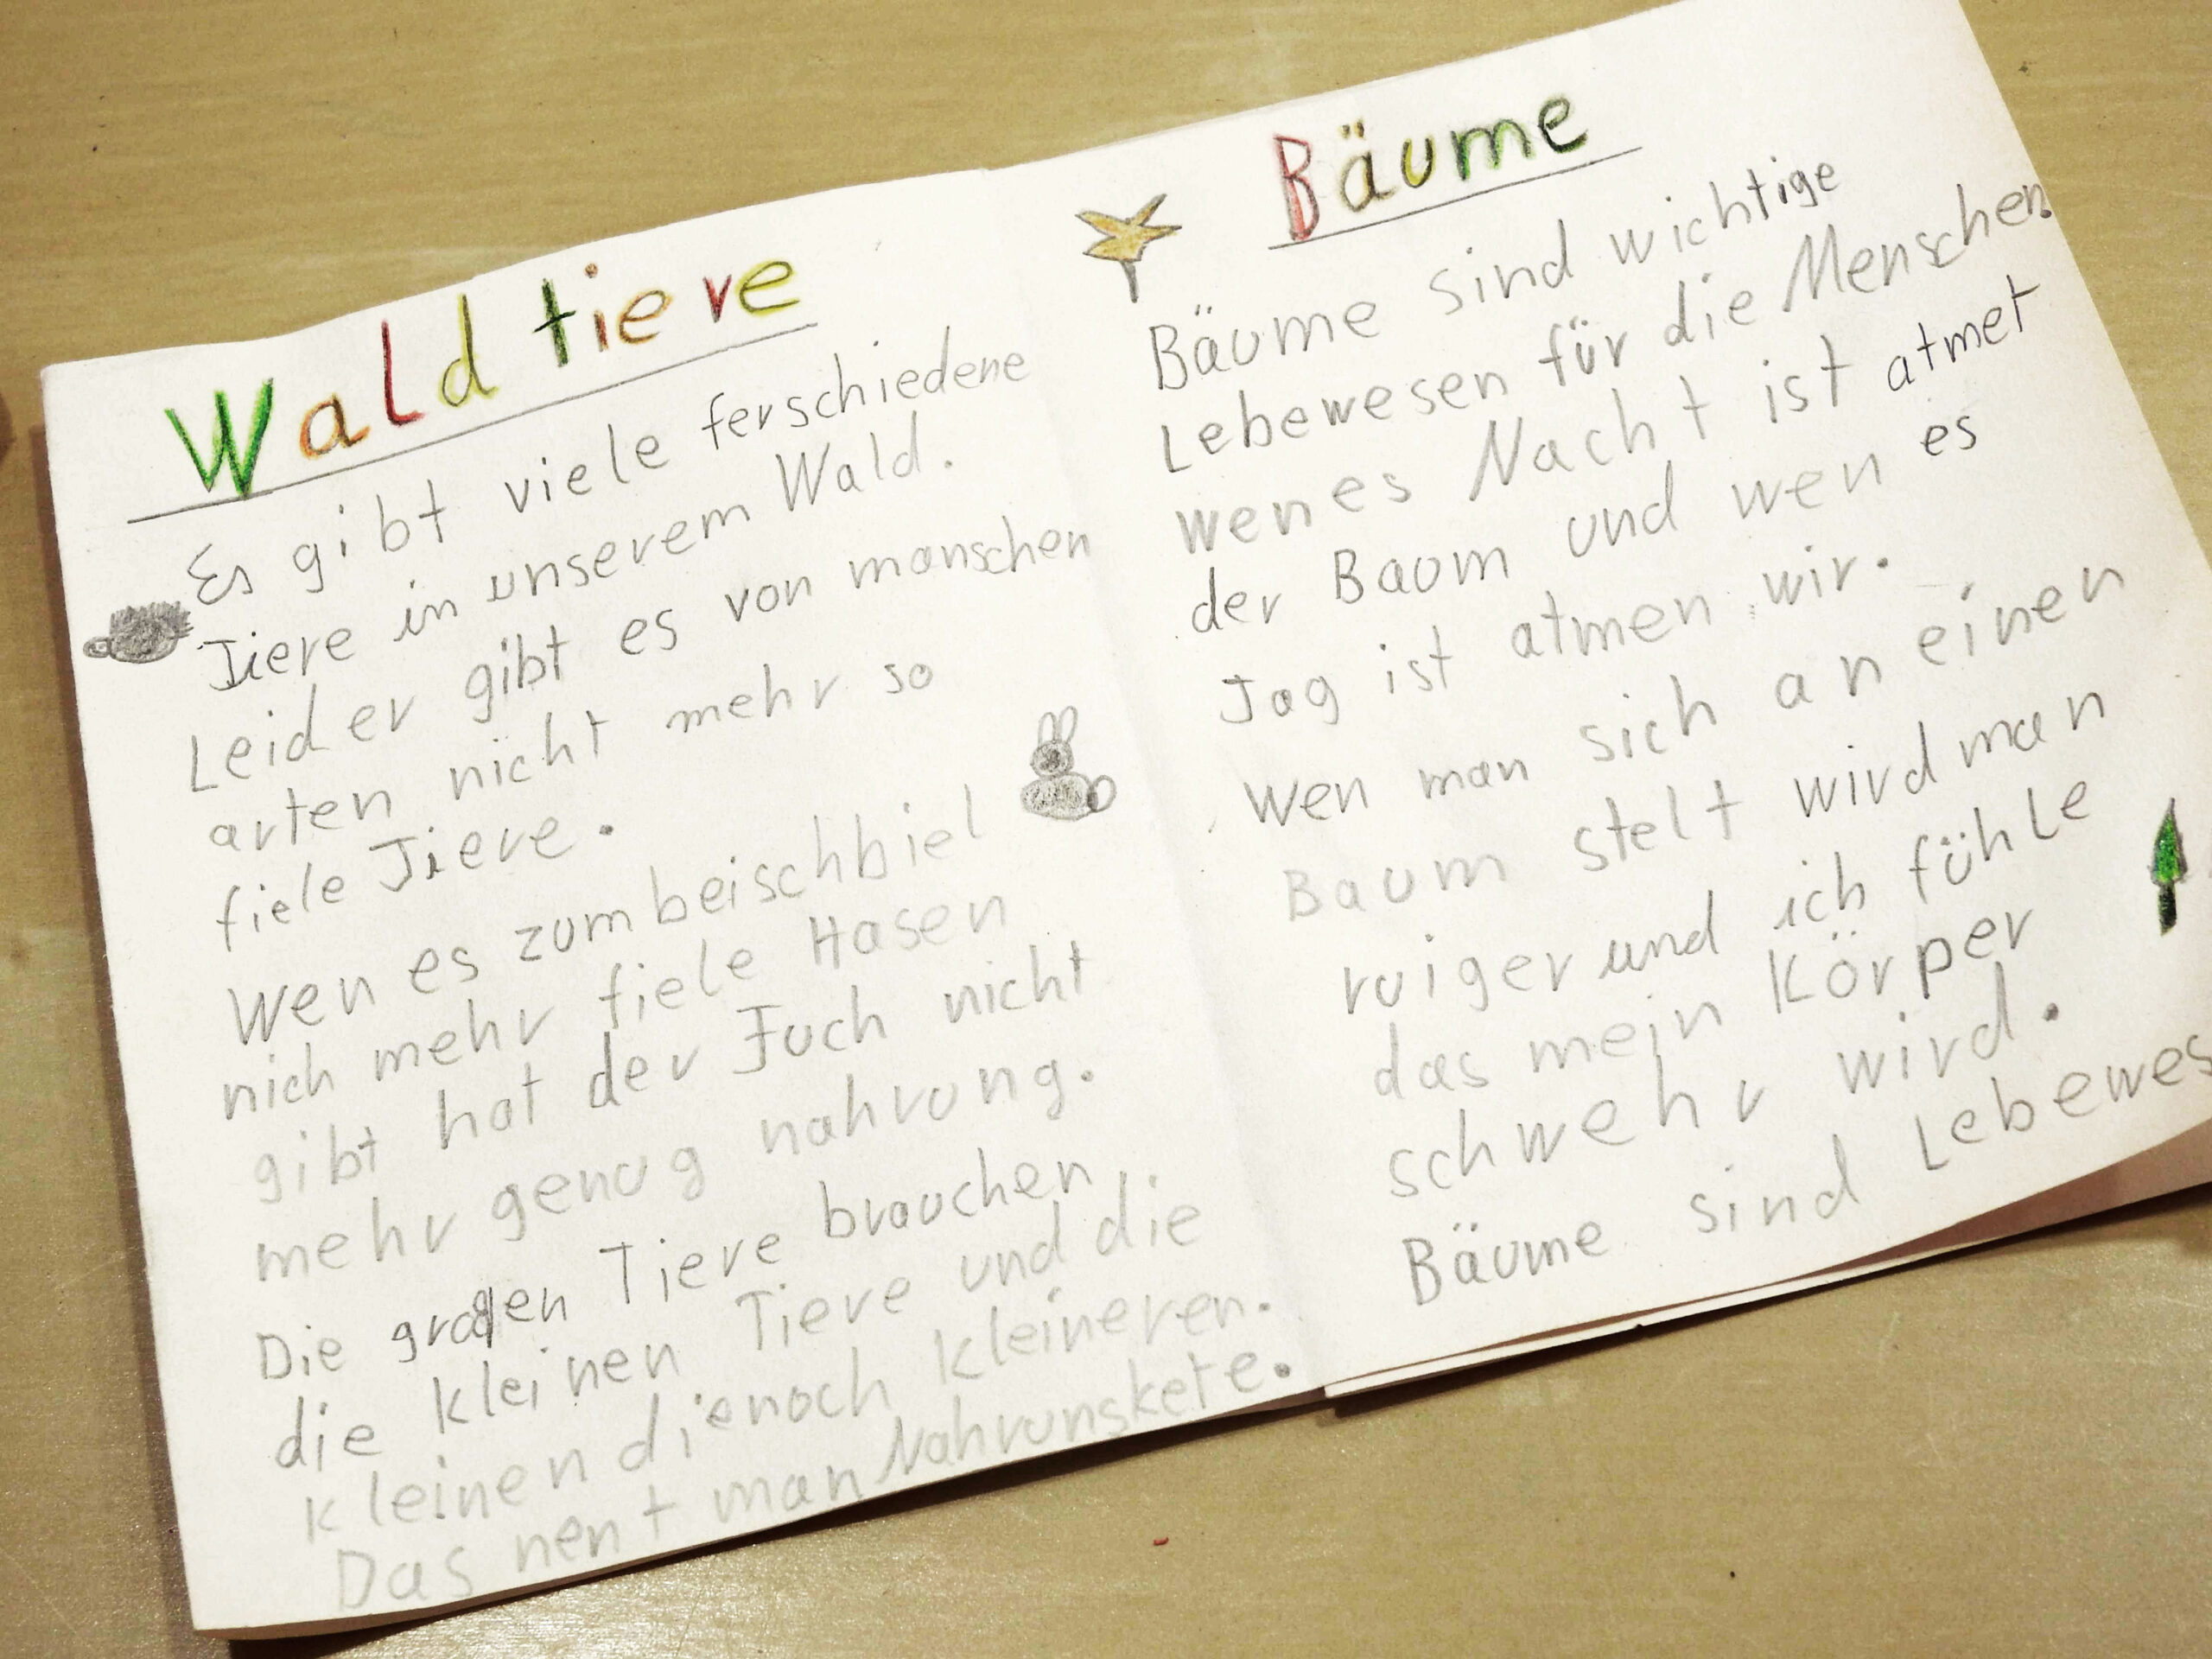 Waldtiere
Es gibt viele ferschiedene
Tiere in unserem Wald.
Leider gibt es von manschen
arten nicht mehr so
fiele Tiere.
Wen es zum beischbiel
nich mehr fiele Hasen
gibt hat der Fuch nicht
mehr genug nahrung.
Die großen Tiere brauchen
die kleinen Tiere und die
kleinen die noch kleineren.
Das nent man Nahrunskete.
Bäume
Bäume sind wichtige
Lebewesen für die Menschen.
wen es Nacht ist atmet
der Baum und wen es
Tag ist atmen wir.
Wen man sich an einen
Baum stelt wird man
ruiger und ich fühle
das mein Körper
schwehr wird.
Bäume sind Lebewes